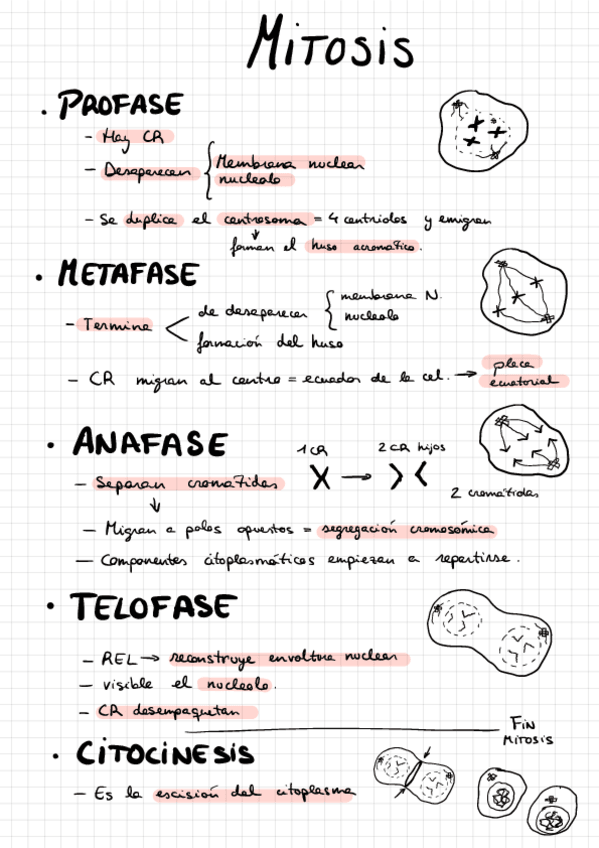 MITOSIS
• PROFASE
- Hay CR
- Desaparecen { Membrana nuclear
nucleolo
- Se duplica el centrosoma = 4 centriolos y emigran
↓
forman el huso acromático.
• METAFASE
- Termina < de desaparecer { membrana N.
nucleolo
formación del huso
- CR migran al centro = ecuador de la cel. → placa
ecuatorial
• ANAFASE
1 CR 2 CR hijos
- Separan cromátidas
2 cromátidas
↓
- Migran a polos opuestos = segregación cromosómica
- Componentes citoplasmáticos empiezan a repartirse.
• TELOFASE
- REL → reconstruye envoltura nuclear
- visible el nucleolo.
- CR desempaquetan
FIN
MITOSIS
• CITOCINESIS
- Es la escisión del citoplasma